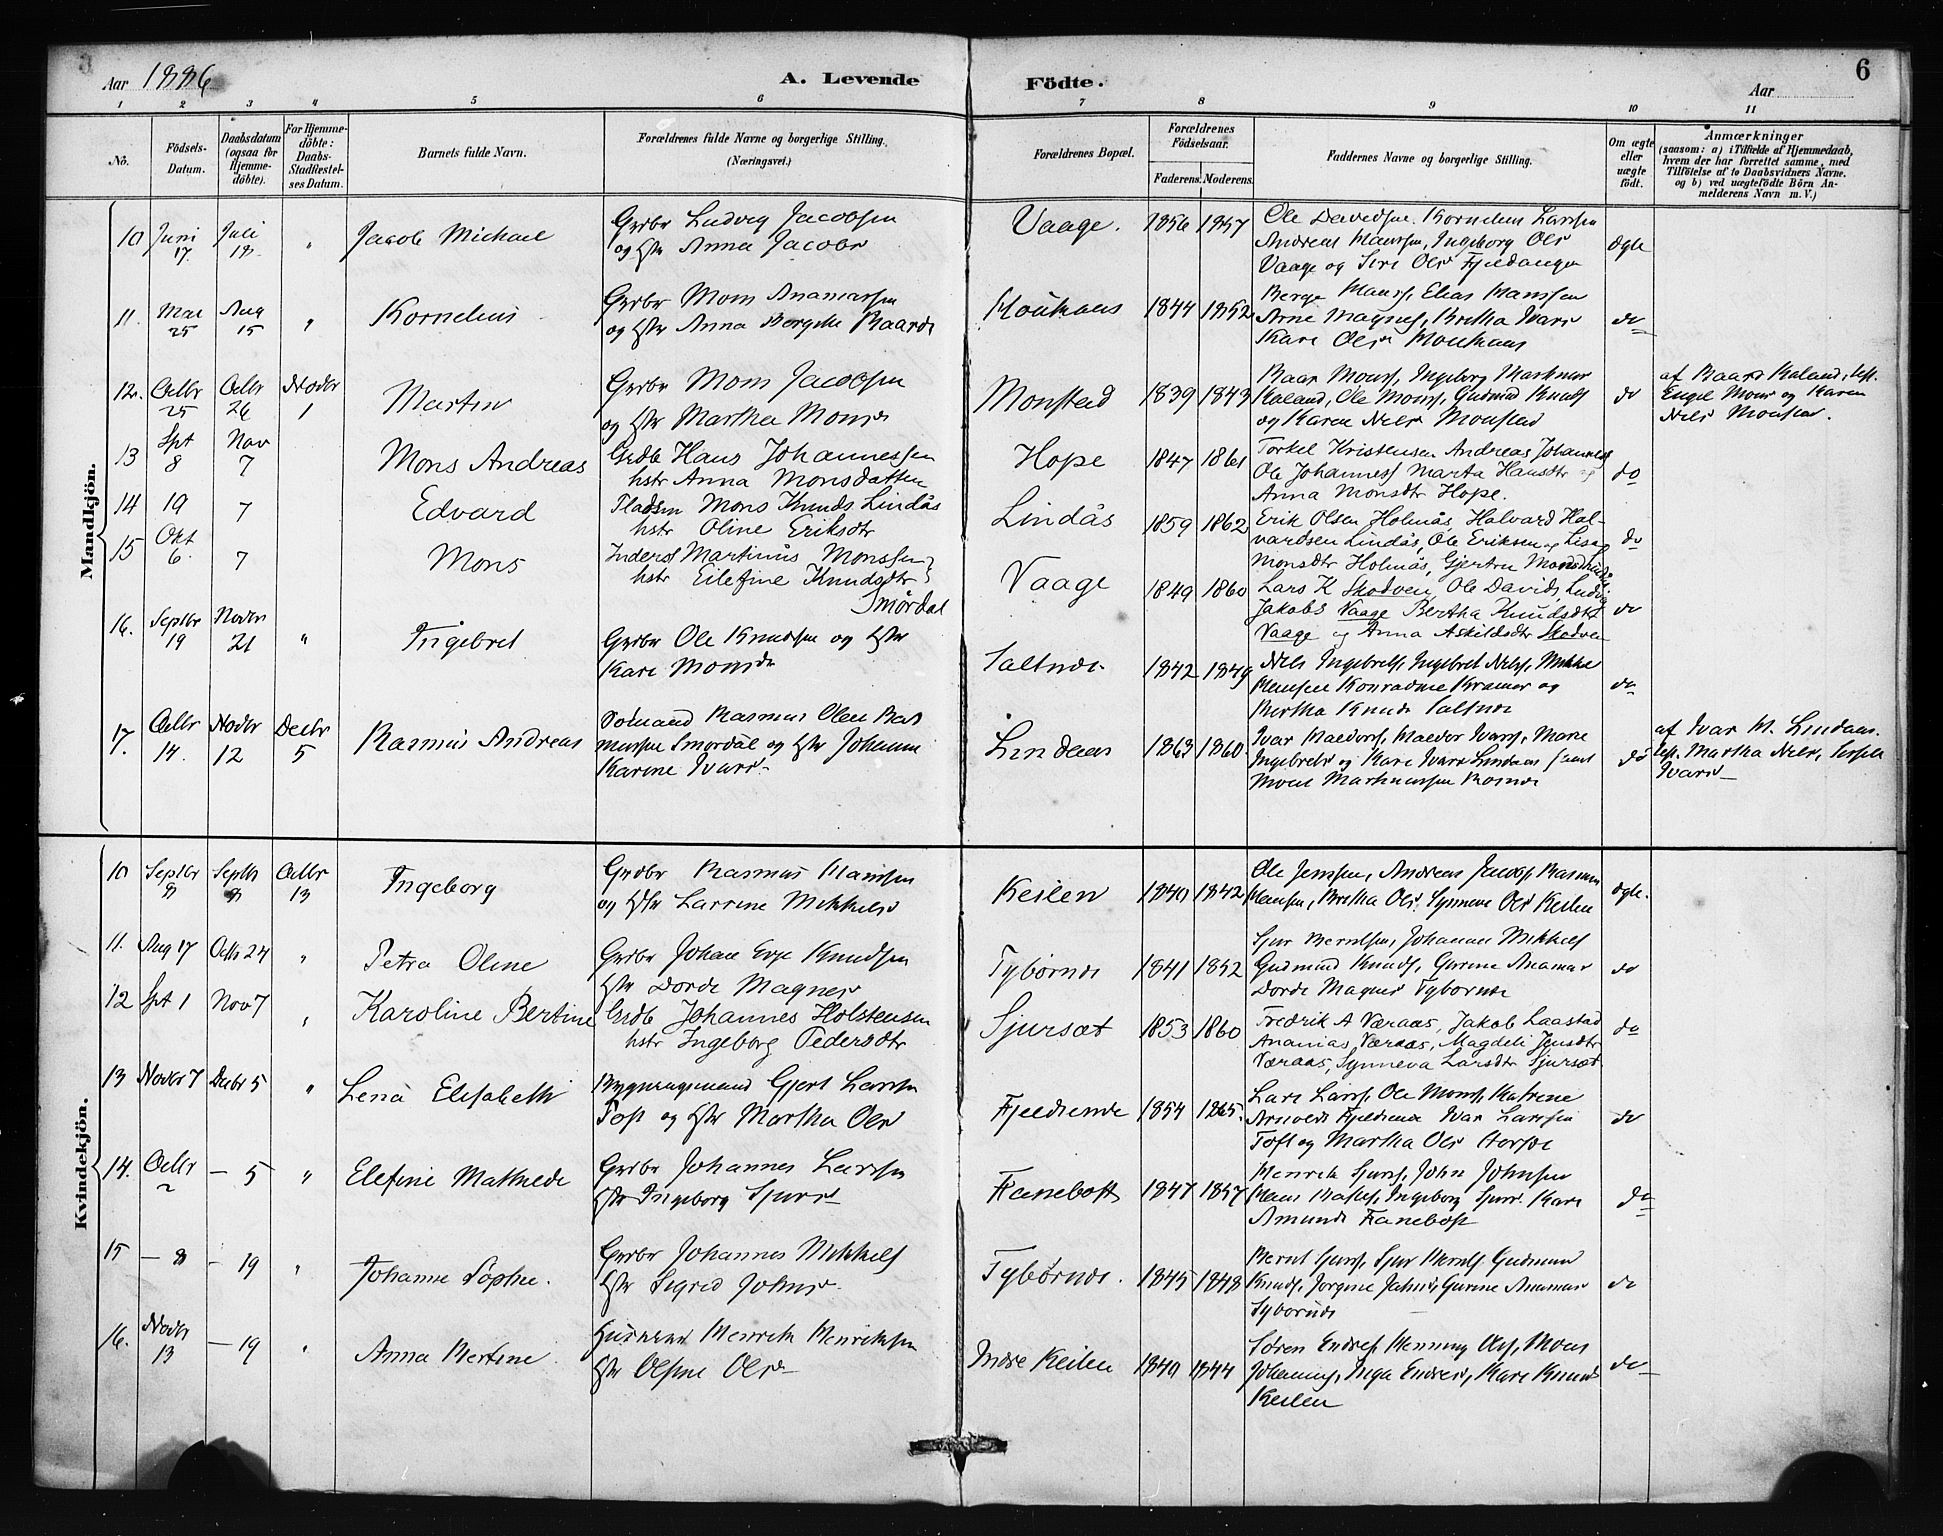 Aar 1886
A. Levende Födte.
6
Aar
1 2 3 4 5 6 7 8 9 10 11
No.
Födsels-Datum.
Daabsdatum (ogsaa for Hjemme-döbte).
For Hjemme-döbte: Daabs-Stadfæstel-ses Datum.
Barnets fulde Navn.
Forældrenes fulde Navne og borgerlige Stilling. (Næringsvei.)
Forældrenes Bopæl.
Forældrenes Födselsaar.
Faderens. Moderens.
Faddernes Navne og borgerlige Stilling.
Om ægte eller uægte födt.
Anmærkninger
(saasom: a) i Tilfælde af Hjemmedaab, hvem der har forrettet samme, med Tilföielse af to Daabsvidners Navne. og b) ved uægtefödte Börn An-melderens Navn m.V.)
Mandkjön.
10 Juni 17 Juli 18 " Jacob Michael
Grdbr Ludvig Jacobsen
og Hstr Anna Jacobsdr
Vaage. 1856 1857
Ole Davidsen. Kornelius Larssen
Andreas Hanssen, Ingeborg Olsdr
Vaage og Siri Olsdr Fjeldanger
ægte
11. Mai 25 Aug 15 " Kornelius
Grdbr Mons Anamiassen
og Hstr Anna Bergitte Baardsdr
1844 1852
Arne Magnes, Brithe Ivarsdr
Kari Olsdr
do
12. Octbr 25 Octbr 26 Novbr 1 Martin
Grdbr Mons Jacobsen
og Hstr Martha Monsdr
Monstad 1839 1843
og Karen Nilsdr Monstad
do
af Baard Kaland, test.
Engel Monsdr og Karen
Nilsdr Monstad.
13 Spt 8 Nov 7 Mons Andreas
Grdb Hans Johannessen
hstr Anna Monsdatter
Hope 1847 1861
Torkel Kristensen Andreas Johanness
Ole Johanness Marta Hansdtr og
Anna Monsdtr Hope.
do
14 19 7 Edvard
Pladsm Mons Knuds Lindås
hstr Oline Eriksdtr
Lindås 1859 1862
Erik Olsen Holmås, Halvard Hal-
vardsen Lindås, Ole Eriksen og Lisa
Monsdtr Holmås, Gjertru Monsdtr
do
15 Okt 6 7 Mons
Inderst Martinus Monssen
hstr Eilefine Knudsdtr
Smørdal
Vaage 1849 1860
Lars K Skodven, Ole Davids, Ludvig
Jakobs Vaage Bertha Knudsdtr
Vaage og Anna Askildsdtr Skodven
do
16. Septbr 19 Novbr 21 " Ingebret
Grdbr Ole Knudsen og Hstr
Kari Monsdr
Saltnes 1842 1849
Nils Ingebrets, Ingebret Nils, Mikkel
Hansen Konradine Kramer og
Bertha Knudsdr Saltnes
do
17. Octbr 14. Novbr 12 Decbr 5 Rasmus Andreas
Sömand Rasmus Olai Ras
mussen Smørdal og Hstr Johanne
Karine Ivarsdr
Lindaas 1863 1860.
Ingebretsdr og Kari Ivarsdr Lindaas samt
do
af Ivar H. Lindaas.
test. Martha Nilsdr,
Ivarsdr
Kvindekjön.
10 Septbr 8 Septbr 8 Octbr 13 Ingeborg
Grdbr Rasmus Hanssen
og Hstr Larsine Mikkelsdr
Keilen 1840 1842
Ole Jenssen, Andreas Jacobs, Rasmus
Hansen, Brithe Olsdr, Synneve Olsdr Keilen
ægte.
11. Aug 17 Octbr 24 " Petra Oline
Grdbr Johan Evje Knudsen
Hstr Dorde Magnesdr
Tybørnes 1841 1852
Sjur Berntsen, Johannes Mikkels
Gudmund Knuds, Gurine
Dorde Magnesdr Tybørnes
do
12 Spt 1 Nov 7 " Karoline Bertine
Grdb Johannes Holstensen
hstr Ingeborg Pedersdtr
Sjursæt 1853 1860
Fredrik A Væraas, Jakob Laastad
Ananias Væraas, Magdeli Jensdtr
Væraas, Synneva Larsdtr Sjursæt
do
13 Novbr 7 Decbr 5 " Lena Elisabeth
Bygningsmand Gjert Larssen
Toft og Hstr Martha Olsdr
Fjeldsende 1854 1865.
Lars Larss, Ole Mons, Katrine
Arnvedsdr Fjeldsende Ivar Larssen
Toft og Martha Olsdr
do
14. Octbr 2 — 5 " Elefine Mathilde
Grdbr Johannes Larssen
Hstr Ingeborg Sjursdr
Fanebost 1847 1857
Henrik Sjurs, John Johnsen
Ingeborg Sjursdr. Kari
Amundsdr Fanebost
do
15 — 8 — 19 " Johanne Sophie.
Grdbr Johannes Mikkels
Hstr Sigrid Johnsdr
Tybørnes. 1845 1848
Bernt Sjurs, Sjur Bernts, Gudmund
Tybørnes
do
16. Novbr 13 — 19 " Anna Bertine
Husmand Henrik Henriksen
Hstr Olsine Olsdr
Indre Keilen 1840 1844
Søren Endres, Henning Ols, Mons
Johannes, Inga Endresdr, Kari Knudsdr
Keilen
do